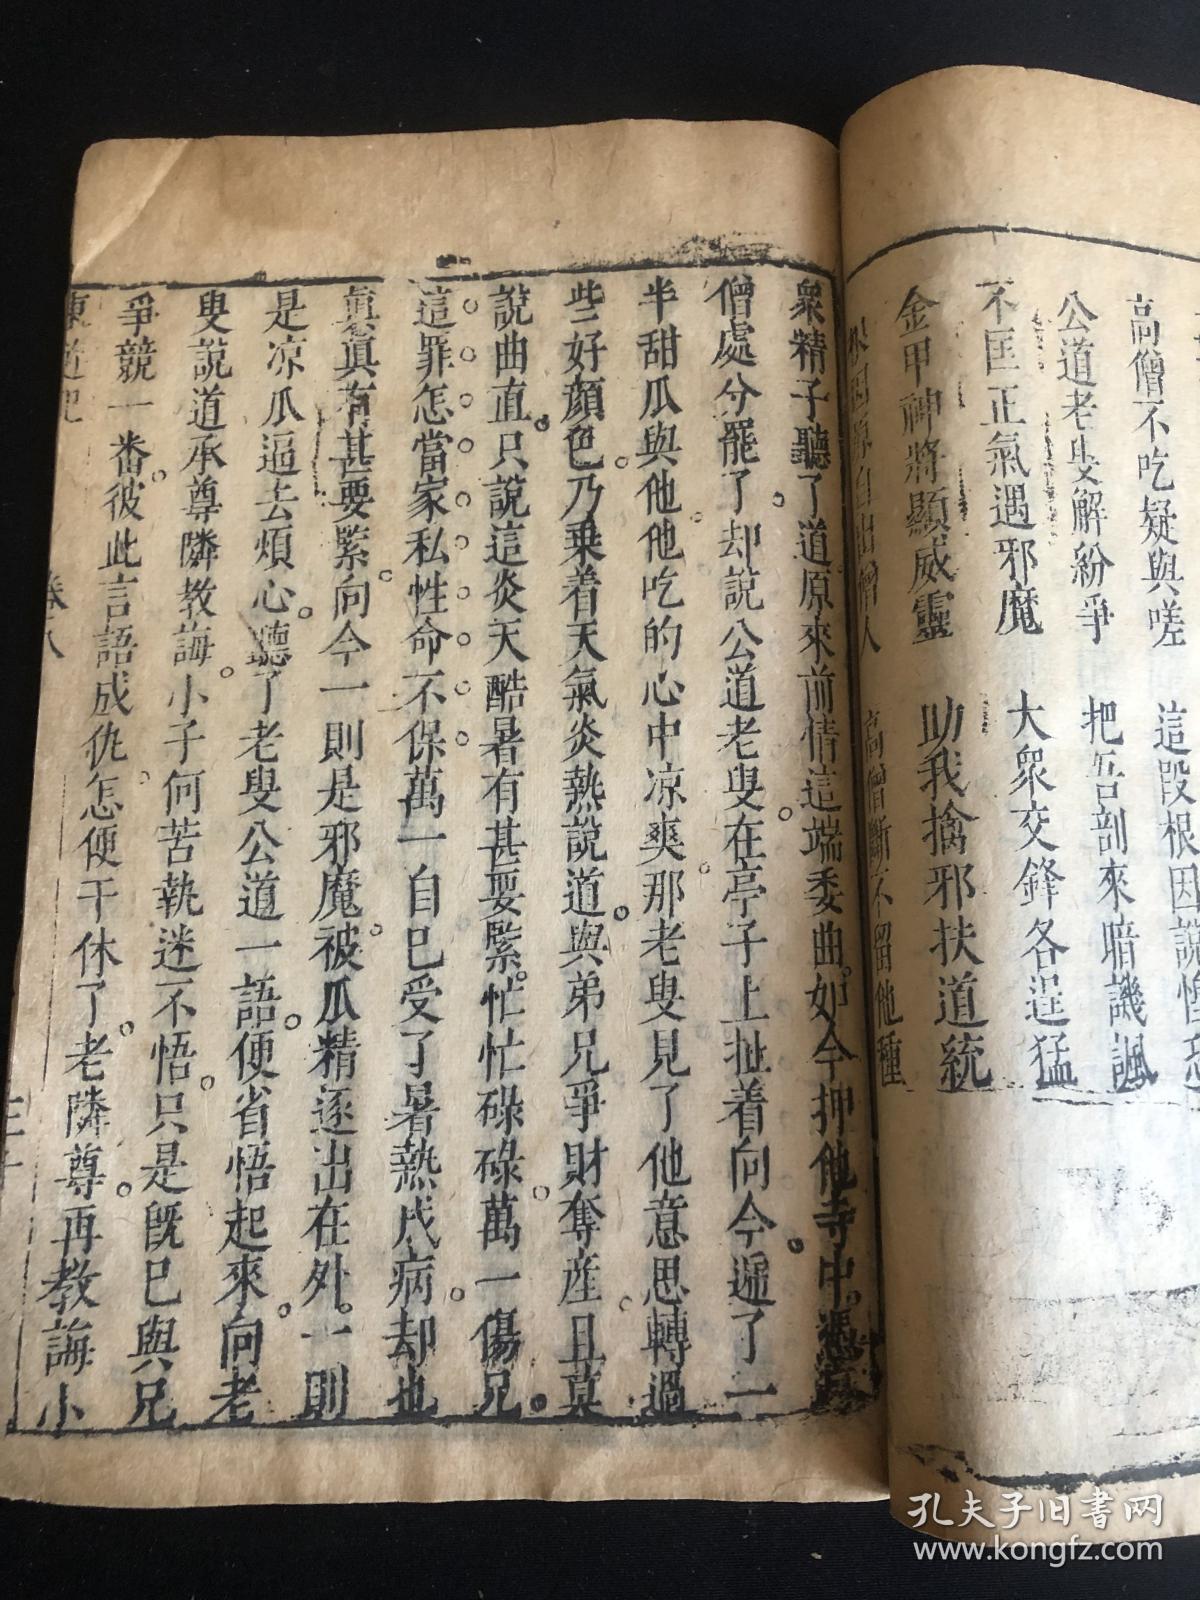 高僧不吃疑與嗟　這段根因說
公道老叟解紛爭　把吾剖來暗譏諷
不匡正氣遇邪魔　大眾交鋒各逞猛
金甲神將顯威靈　助我擒邪扶道統
自出僧人　高僧斷不留他種
衆精子聽了道原來前情這端委曲如今押他寺中憑高
僧處分罷了却說公道老叟在亭子上扯着向今遞了一
半甜瓜與他他吃的心中凉爽那老叟見了他意思轉過
些好顏色乃乗着天氣炎熱說道與弟兄爭財奪産且莫
說曲直只說這炎天酷暑有甚要緊忙忙碌碌萬一傷兄
這罪怎當家私性命不保萬一自已受了暑熱成病却也
眞眞有甚要緊向今一則是邪魔被瓜精逐出在外一則
是凉瓜逼去煩心聽了老叟公道一語便省悟起來向老
叟說道承尊隣教誨小子何苦執迷不悟只是旣已與兄
爭競一番彼此言語成仇怎便干休了老隣尊再教誨小
東遊記　卷八　三十
孔夫子旧书网
www.kongfz.com